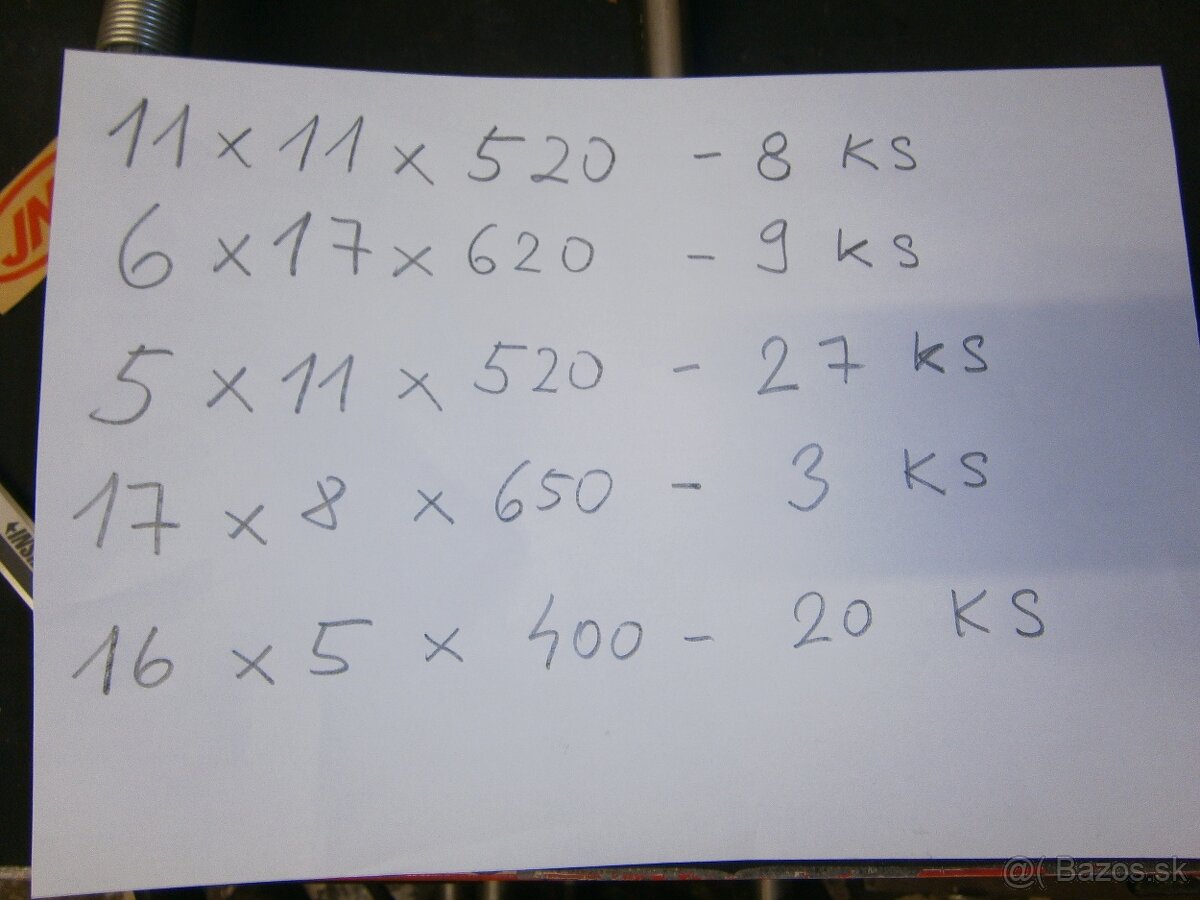 11 x 11 x 520 - 8 KS
6 x 17 x 620 - 9 KS
5 x 11 x 520 - 27 KS
17 x 8 x 650 - 3 KS
16 x 5 x 400 - 20 KS
@( Bazos.sk